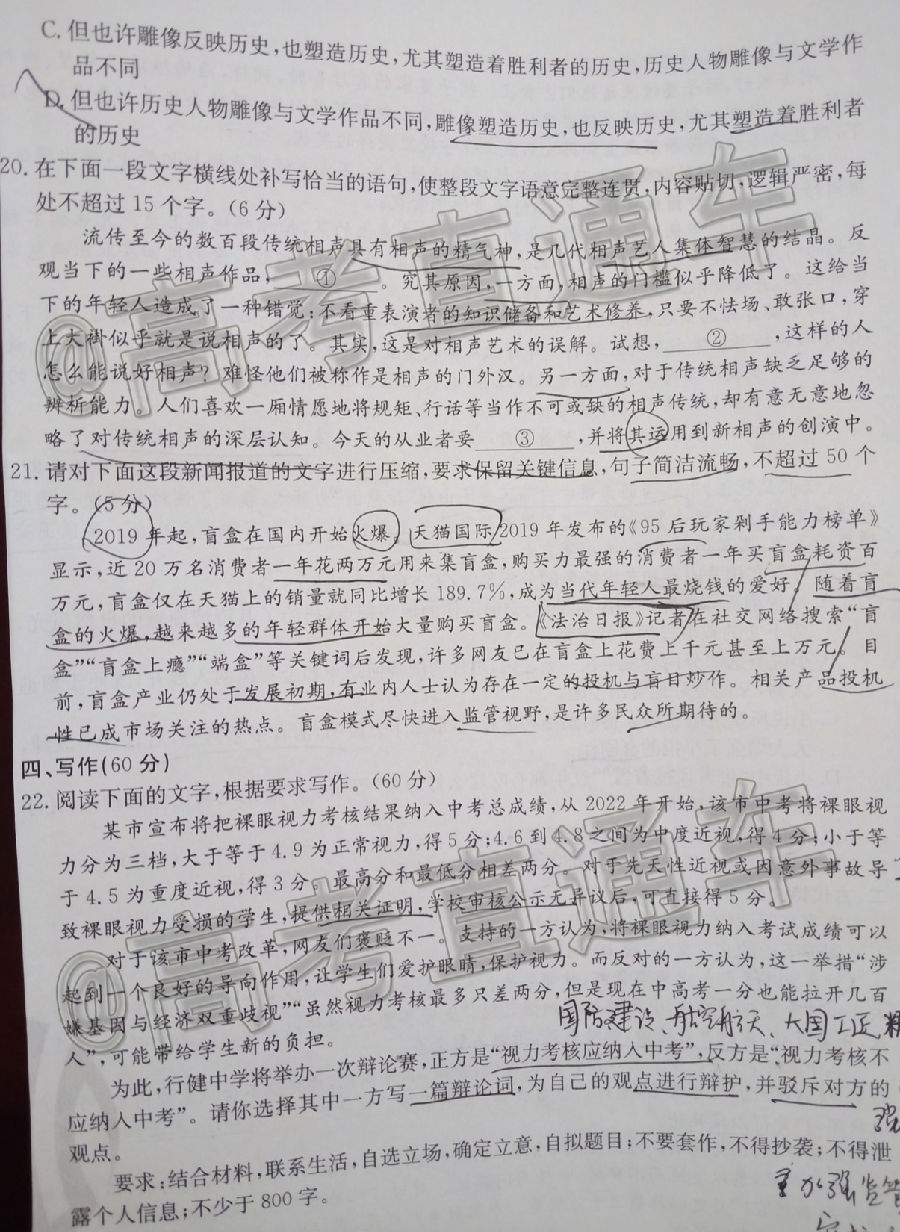 C. 但也许雕像反映历史,也塑造历史,尤其塑造着胜利者的历史,历史人物雕像与文学作
品不同
D. 但也许历史人物雕像与文学作品不同,雕像塑造历史,也反映历史,尤其塑造着胜利者
的历史
20. 在下面一段文字横线处补写恰当的语句,使整段文字语意完整连贯,内容贴切,逻辑严密,每
处不超过 15 个字。(6 分)
流传至今的数百段传统相声具有相声的精气神,是几代相声艺人集体智慧的结晶。反
观当下的一些相声作品, ① 。究其原因,一方面,相声的门槛似乎降低了。这给当
下的年轻人造成了一种错觉:不看重表演者的知识储备和艺术修养,只要不怯场、敢张口,穿
上大褂似乎就是说相声的了。其实,这是对相声艺术的误解。试想, ② ,这样的人
怎么能说好相声?难怪他们被称作是相声的门外汉。另一方面,对于传统相声缺乏足够的
辨析能力。人们喜欢一厢情愿地将规矩、行话等当作不可或缺的相声传统,却有意无意地忽
略了对传统相声的深层认知。今天的从业者要 ③ ,并将其运用到新相声的创演中。
21. 请对下面这段新闻报道的文字进行压缩,要求保留关键信息,句子简洁流畅,不超过 50 个
字。(5 分)
2019 年起,盲盒在国内开始火爆。天猫国际 2019 年发布的《95 后玩家剁手能力榜单》
显示,近 20 万名消费者一年花两万元用来集盲盒,购买力最强的消费者一年买盲盒耗资百
万元,盲盒仅在天猫上的销量就同比增长 189.7%,成为当代年轻人最烧钱的爱好。随着盲
盒的火爆,越来越多的年轻群体开始大量购买盲盒。《法治日报》记者在社交网络搜索“盲
盒”“盲盒上瘾”“端盒”等关键词后发现,许多网友已在盲盒上花费上千元甚至上万元。目
前,盲盒产业仍处于发展初期,有业内人士认为存在一定的投机与盲目炒作。相关产品投机
性已成市场关注的热点。盲盒模式尽快进入监管视野,是许多民众所期待的。
四、写作(60 分)
22. 阅读下面的文字,根据要求写作。(60 分)
某市宣布将把裸眼视力考核结果纳入中考总成绩,从 2022 年开始,该市中考将裸眼视
力分为三档,大于等于 4.9 为正常视力,得 5 分;4.6 到 4.8 之间为中度近视,得 4 分;小于等
于 4.5 为重度近视,得 3 分。最高分和最低分相差两分。对于先天性近视或因意外事故导
致裸眼视力受损的学生,提供相关证明,学校审核公示无异议后,可直接得 5 分。
对于该市中考改革,网友们褒贬不一。支持的一方认为,将裸眼视力纳入考试成绩可以
起到一个良好的导向作用,让学生们爱护眼睛,保护视力。而反对的一方认为,这一举措“涉
嫌基因与经济双重歧视”“虽然视力考核最多只差两分,但是现在中高考一分也能拉开几百
人”,可能带给学生新的负担。
国防建设、航空航天、大国工匠
为此,行健中学将举办一次辩论赛,正方是“视力考核应纳入中考”,反方是“视力考核不
应纳入中考”。请你选择其中一方写一篇辩论词,为自己的观点进行辩护,并驳斥对方的
观点。
要求:结合材料,联系生活,自选立场,确定立意,自拟题目;不要套作,不得抄袭;不得泄
露个人信息;不少于 800 字。
加强监管
@高考直通车
@高考直通车